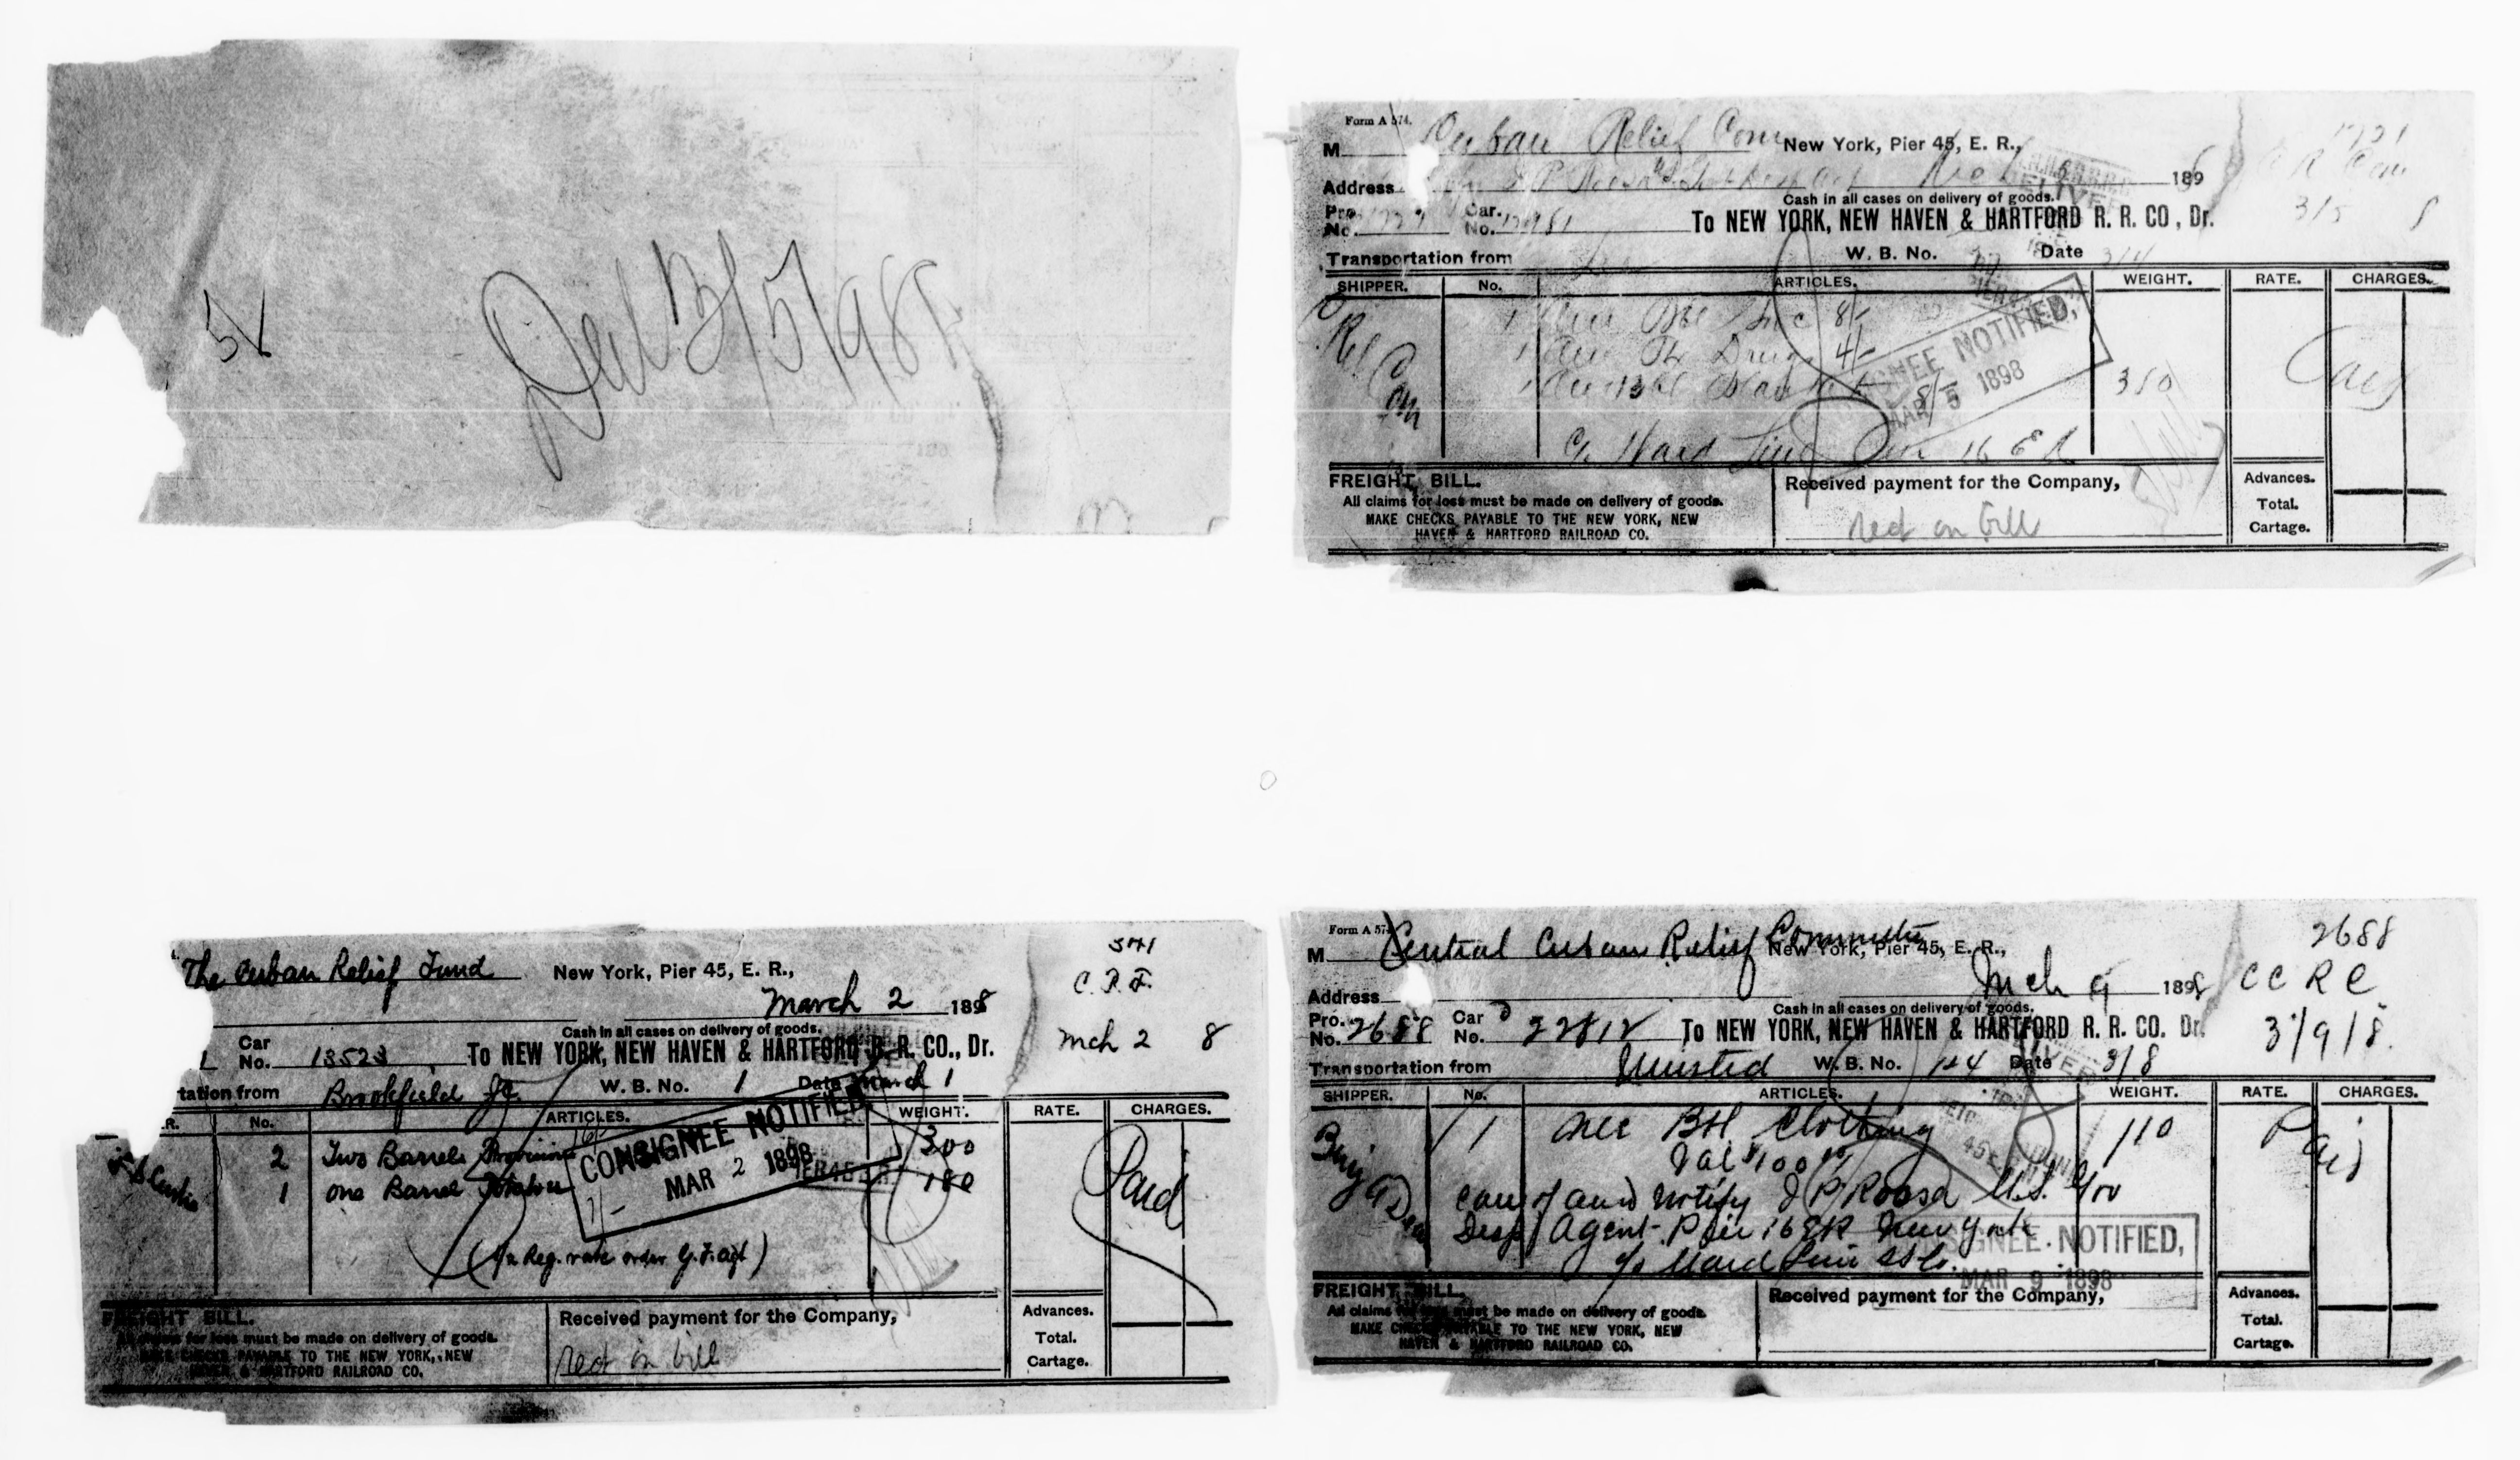 Del 3/5/98
Form A 574.
M Cuban Relief Com New York, Pier 45, E. R.,
Address 189
Cash in all cases on delivery of goods.
Pro. No. Car. No. To NEW YORK, NEW HAVEN & HARTFORD R. R. CO, Dr.
3/5 8
Transportation from W. B. No. Date 3/4
SHIPPER. No. ARTICLES. WEIGHT. RATE. CHARGES.
Rel Com
1 8/-
1 Drugs 4/-
1 350
CONSIGNEE NOTIFIED,
MAR 5 1898
Paid
c/o Ward Line Pier 16 E R
FREIGHT BILL.
All claims for loss must be made on delivery of goods.
MAKE CHECKS PAYABLE TO THE NEW YORK, NEW
HAVEN & HARTFORD RAILROAD CO.
Received payment for the Company,
Recd on bill
Advances.
Total.
Cartage.
The Cuban Relief Fund New York, Pier 45, E. R.,
341
C. R. F.
March 2 1898
Cash in all cases on delivery of goods.
Mch 2 8
Car No. 13523 To NEW YORK, NEW HAVEN & HARTFORD R. R. CO., Dr.
tation from Brookfield Jc. W. B. No. 1 Date March 1
R. No. ARTICLES. WEIGHT. RATE. CHARGES.
2 Two Barrels Provisions 300
1 One Barrel Potatoes 180
CONSIGNEE NOTIFIED
MAR 2 1898
Paid
(1/2 Reg. rate order G. F. agt)
FREIGHT BILL.
All claims for loss must be made on delivery of goods.
MAKE CHECKS PAYABLE TO THE NEW YORK, NEW
HAVEN & HARTFORD RAILROAD CO.
Received payment for the Company,
Recd on bill
Advances.
Total.
Cartage.
Form A 574
M Central Cuban Relief Committee New York, Pier 45, E. R.,
2688
Address Mch 9 1898
C C R C
Cash in all cases on delivery of goods.
Pro. No. 2688 Car No. 22812 To NEW YORK, NEW HAVEN & HARTFORD R. R. CO. Dr.
3/9/8.
Transportation from Winsted W. B. No. 124 Date 3/8
SHIPPER. No. ARTICLES. WEIGHT. RATE. CHARGES.
1 One Bbl Clothing 110 Paid
Val $100.00
Care of and Notify J P Roosa U.S.
Desp Agent. Pier 16 ER New York
c/o Ward Line SS Co.
CONSIGNEE NOTIFIED,
MAR 9 1898
FREIGHT BILL.
All claims for loss must be made on delivery of goods.
MAKE CHECKS PAYABLE TO THE NEW YORK, NEW
HAVEN & HARTFORD RAILROAD CO.
Received payment for the Company,
Advances.
Total.
Cartage.